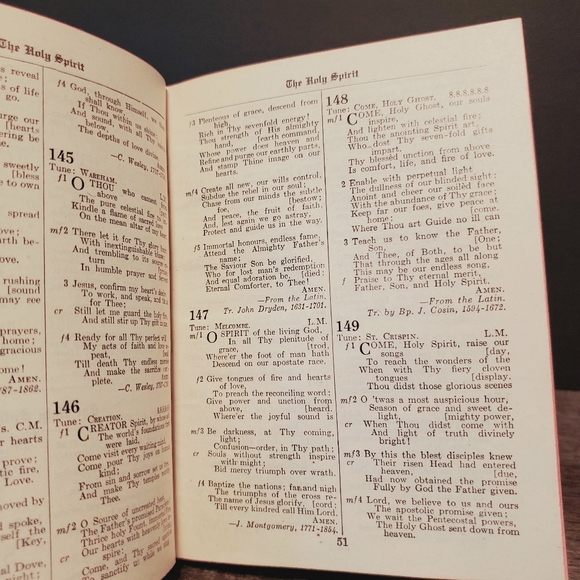 The Holy Spirit
s reveal
s of life
go.
urge our
[hearts
ering be
sweetly
[bless
e to own
spread
arth be-
rushing
[sound
may see
prayers,
home;
gracious
come!
AMEN.
87-1862.
s. C.M.
r hearts
prove;
tic fire,
Love.
oved by
d spoke,
self the
[Key,
Dove,
f4 God, through Himself, we
shall know,
If Thou within us shine;
And sound, with all Thy
The depths of love divine.
—C. Wesley,
145
Tune: WAREHAM.
f1 O THOU who camest
above
The pure celestial fire
Kindle a flame of sacred
On the mean altar of my
mf2 There let it for Thy glory
With inextinguishable
And trembling to its
turn
In humble prayer and
3 Jesus, confirm my heart's
To work, and speak, and
for Thee;
cr Still let me guard the holy
And still stir up Thy gift
f4 Ready for all Thy perfect
My acts of faith and love
peat,
Till death Thy endless
And make the sacrifice
plete.
—C. Wesley,
146
Tune: CREATION.
f1 CREATOR Spirit, by whose
The world's foundations
were laid,
Come visit every waiting
Come pour Thy joys on
kind;
From sin and sorrow set us
And make Thy temples
Thee.
mf2 O Source of uncreated
The Father's promised
Thrice holy Fount,
Our hearts with heavenly
spire;
cr Come, and Thy sacred
To sanctify us while
The Holy Spirit
f3 Plenteous of grace, descend from
high,
Rich in Thy sevenfold energy!
Thou strength of His almighty
hand, [earth command,
Whose power does heaven and
Refine and purge our earthy parts,
And stamp Thine image on our
hearts.
mf4 Create all new, our wills control,
Subdue the rebel in our soul;
Chase from our minds the subtle
foe, [bestow;
And peace, the fruit of faith,
And, lest again we go astray,
Protect and guide us in the way.
f5 Immortal honours, endless fame,
Attend the Almighty Father's
name;
The Saviour Son be glorified,
Who for lost man's redemption
And equal adoration be, [died:
Eternal Comforter, to Thee!
AMEN.
—From the Latin.
Tr. John Dryden, 1631-1701.
147
Tune: MELCOMBE. L.M.
mf1 O SPIRIT of the living God,
In all Thy plenitude of
grace, [trod,
Where'er the foot of man hath
Descend on our apostate race.
f2 Give tongues of fire and hearts
of love,
To preach the reconciling word;
Give power and unction from
above, [heard.
Where'er the joyful sound is
mf3 Be darkness, at Thy coming,
light;
Confusion—order, in Thy path;
cr Souls without strength inspire
with might;
Bid mercy triumph over wrath.
f4 Baptize the nations; far and nigh
The triumphs of the cross re-
The name of Jesus glorify, [cord;
Till every kindred call Him Lord.
AMEN.
—J. Montgomery, 1771-1854.
148
8.8.8.8.8.8.
Tune: COME, HOLY GHOST.
mf1 COME, Holy Ghost, our souls
inspire,
And lighten with celestial fire;
Thou the anointing Spirit art,
Who dost Thy seven-fold gifts
impart.
Thy blessed unction from above
Is comfort, life, and fire of love.
2 Enable with perpetual light
The dullness of our blinded sight;
Anoint and cheer our soiled face
With the abundance of Thy grace;
Keep far our foes, give peace at
home; [come.
Where Thou art Guide no ill can
3 Teach us to know the Father,
Son, [One;
And Thee, of Both, to be but
That through the ages all along
This may be our endless song,
f Praise to Thy eternal merit,
Father, Son, and Holy Spirit.
AMEN.
—From the Latin.
Tr. by Bp. J. Cosin, 1594-1672.
149
Tune: ST. CRISPIN. L.M.
f1 COME, Holy Spirit, raise our
songs [day,
To reach the wonders of the
When with Thy fiery cloven
tongues [display.
Thou didst those glorious scenes
mf2 O 'twas a most auspicious hour,
Season of grace and sweet de-
light, [mighty power,
cr When Thou didst come with
And light of truth divinely
bright!
mf3 By this the blest disciples knew
cr Their risen Head had entered
heaven, [due,
Had now obtained the promise
Fully by God the Father given.
mf4 Lord, we believe to us and ours
The apostolic promise given;
We wait the Pentecostal powers,
The Holy Ghost sent down from
heaven.
51